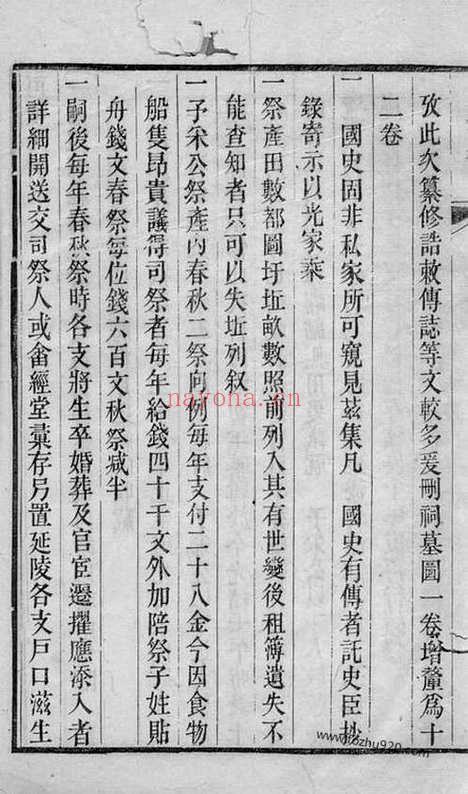 攷此次纂修誥敕傳誌等文較多爰刪祠墓圖一卷增釐爲十
二卷
一　國史固非私家所可窺見茲集凡　國史有傳者託史臣抄
錄寄示以光家乘
一祭產田數都圖圩坵畝數照前列入其有世變後租簿遺失不
能查知者只可以失坵列叙
一予宋公祭產內春秋二祭向例每年支付二十八金今因食物
船隻昂貴議得司祭者每年給錢四十千文外加陪祭子姓貼
舟錢文春祭每位錢六百文秋祭減半
一嗣後每年春秋祭時各支將生卒婚葬及官宦遷擢應添入者
詳細開送交司祭人或畬經堂彙存另置延陵各支戶口滋生
nayona.cn
www.bzhu920.com